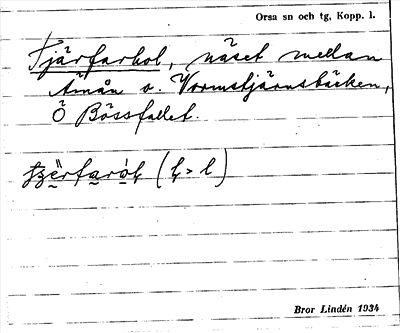 Orsa sn och tg, Kopp. l.
Tjärfarhol, näset mellan
Åmån o. Vormstjärnsbäcken,
Ö Bössfallet.
Bror Lindén 1934